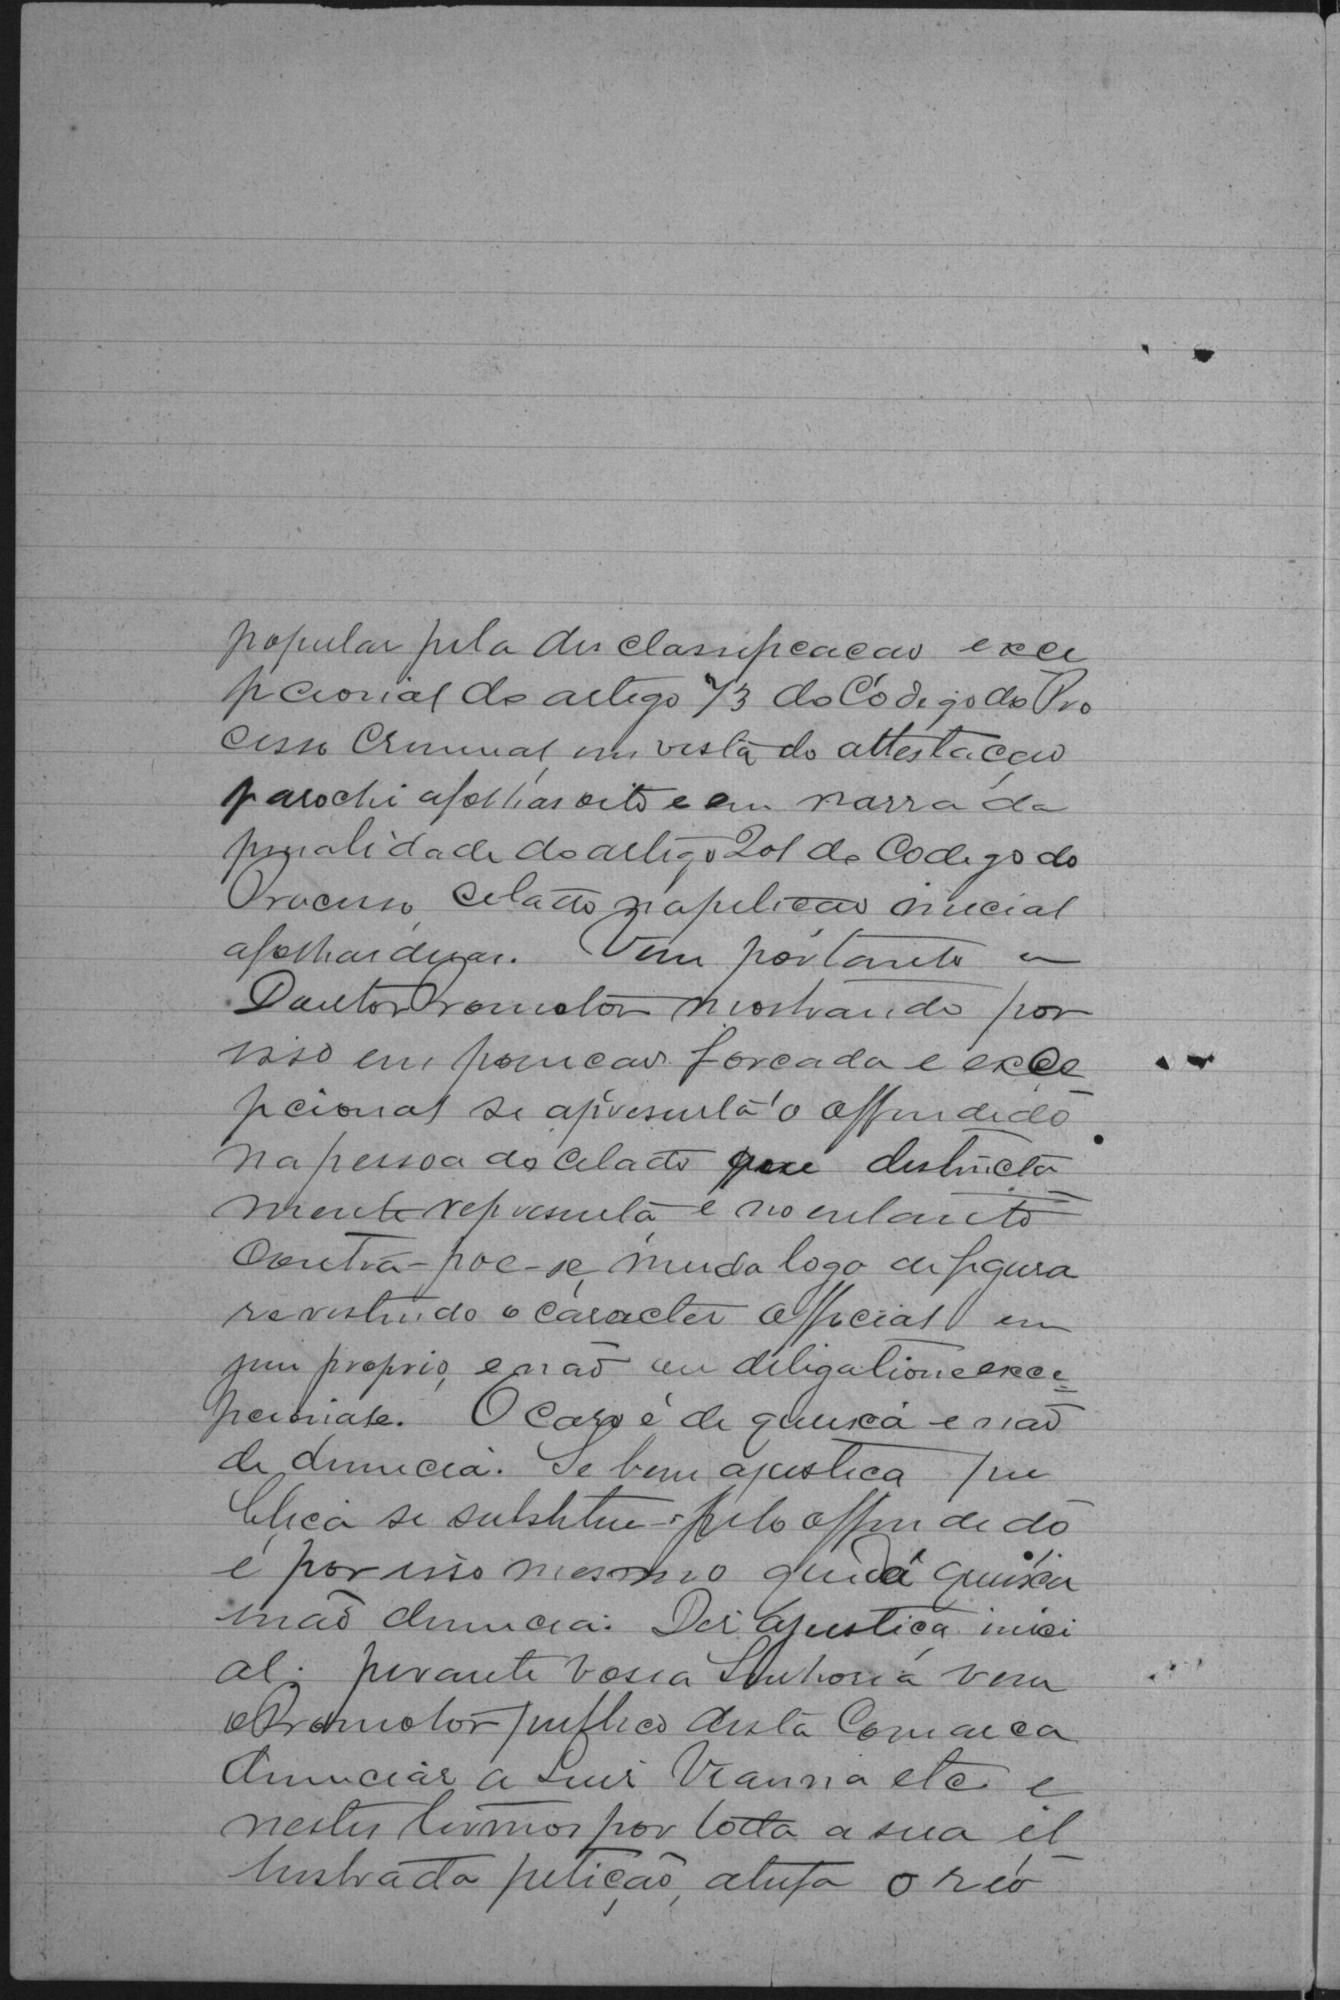 popular pela desclassificacao exce
pcional do artigo 73 do Codigo do Pro
cesso Criminal, em vista do attestaçao
parochi a folhas oito e em narra da
penalidade do artigo 201 do Codigo do
Processo, Celato na petição inicial
a folhas duas. Vem portanto o
Doutor Promotor mostrando por
isso em forcada e exce
pcional se apresenta o offendido
na pessoa do Celato que destincta
mente representa e no entanto
contra-poe-se, muda logo de figura
revestindo o caracter official em
jure proprio, e não em diligatione exce
pcionale. O caso é de queixa e não
de denuncia. Se bem a justica pu
blica se substitue pelo offendido
é por isso mesmo que dá queixa
não denuncia. Diz a justiça inici
al: perante Vossa Senhoria vem
o Promotor publico desta Comarca
denunciar a Luis Vianna etc e
nestes termos por toda a sua il
lustrada petição, o réo